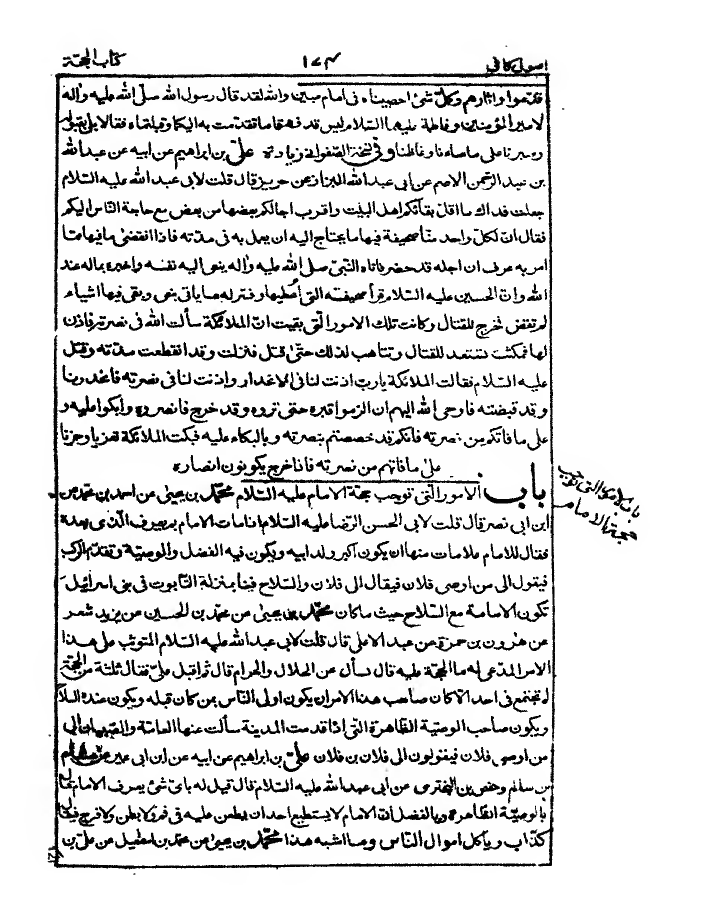 اصول کافی ۱۷۴ کتاب الحجة
قدّموا واثارهم وکلّ شئ احصیناه فی امام مبین والله لقد قال رسول الله صلّی الله علیه وآله
لامیر المؤمنین وفاطمة علیهما السّلام لیس قد فهمتما ما تقدّمت به الیکما وقبلتماه فقالا بلی بقبوله
وصبرنا علی ما ساءنا وغاظنا وفی نسخة الصفوانی زیادة علیّ بن ابراهیم عن ابیه عن عبد الله
بن عبد الرّحمن الاصم عن ابی عبد الله البزاز عن حریز قال قلت لابی عبد الله علیه السّلام
جعلت فداک ما اقلّ بقائکم اهل البیت واقرب اجالکم بعضها من بعض مع حاجة النّاس الیکم
فقال انّ لکلّ واحد منّا صحیفة فیها ما یحتاج الیه ان یعمل به فی مدّته فاذا انقضی ما فیها ممّا
امر به عرف ان اجله قد حضر فاتاه النّبیّ صلّی الله علیه واله ینعی الیه نفسه واخبره بماله عند
الله وانّ الحسین علیه السّلام قرأ صحیفته الّتی اُعطیها وفسّر له ما یأتی بنعی وبقی فیها اشیاء
لم تقض فخرج للقتال وکانت تلک الامور الّتی بقیت انّ الملائکة سألت الله فی نصرته فاذن
لها فمکثت تستعد للقتال وتتأهب لذلک حتّی قتل فنزلت وقد انقطعت مدّته وقتل
علیه السّلام فقالت الملائکة یا ربّ اذنت لنا فی الانحدار واذنت لنا فی نصرته فانحدرنا
وقد قبضته فاوحی الله الیهم ان الزموا قبره حتی تروه وقد خرج فانصروه وابکوا علیه و
علی ما فاتکم من نصرته فانکم قد خصصتم بنصرته وبالبکاء علیه فبکت الملائکة تعزیا وحزنا
علی ما فاتهم من نصرته فاذا خرج یکونون انصاره
باب الامور الّتی توجب حجة الامام علیه السّلام محمّد بن یحیی عن احمد بن محمّد عن
باب الامور التی توجب
حجة الامام
ابن ابی نصر قال قلت لابی الحسن الرّضا علیه السّلام اذا مات الامام بم یعرف الّذی بعده
فقال للامام علامات منها ان یکون اکبر ولد ابیه ویکون فیه الفضل والوصیّة وتقدم الرکب
فیقول الی من اوصی فلان فیقال الی فلان والسّلاح فینا بمنزلة التّابوت فی بنی اسرائیل
تکون الامامة مع السّلاح حیث ما کان محمّد بن یحیی عن محمّد بن الحسین عن یزید شعر
عن هرون بن حمزة عن عبد الاعلی قال قلت لابی عبد الله علیه السّلام المتوثّب علی هذا
الامر المدّعی له ما الحجّة علیه قال یسأل عن الحلال والحرام قال ثم اقبل علیّ فقال ثلثة من الحجّة
لم تجتمع فی احد الا کان صاحب هذا الامر ان یکون اولی النّاس بمن کان قبله ویکون عنده السّلا
ویکون صاحب الوصیّة الظّاهرة الّتی اذا قدمت المدینة سألت عنها العامّة والصّبیان الی
من اوصی فلان فیقولون الی فلان بن فلان علیّ بن ابراهیم عن ابیه عن ابن ابی عمیر عن هشام
بن سالم وحفص بن البختری عن ابی عبد الله علیه السّلام قال قیل له بایّ شئ یعرف الامام قال
بالوصیّة الظّاهرة وبالفضل انّ الامام لا یستطیع احد ان یطعن علیه فی فم ولا بطن ولا فرج فیقال
کذّاب ویأکل اموال النّاس وما اشبه هذا محمّد بن یحیی عن محمّد بن اسمعیل عن علیّ بن